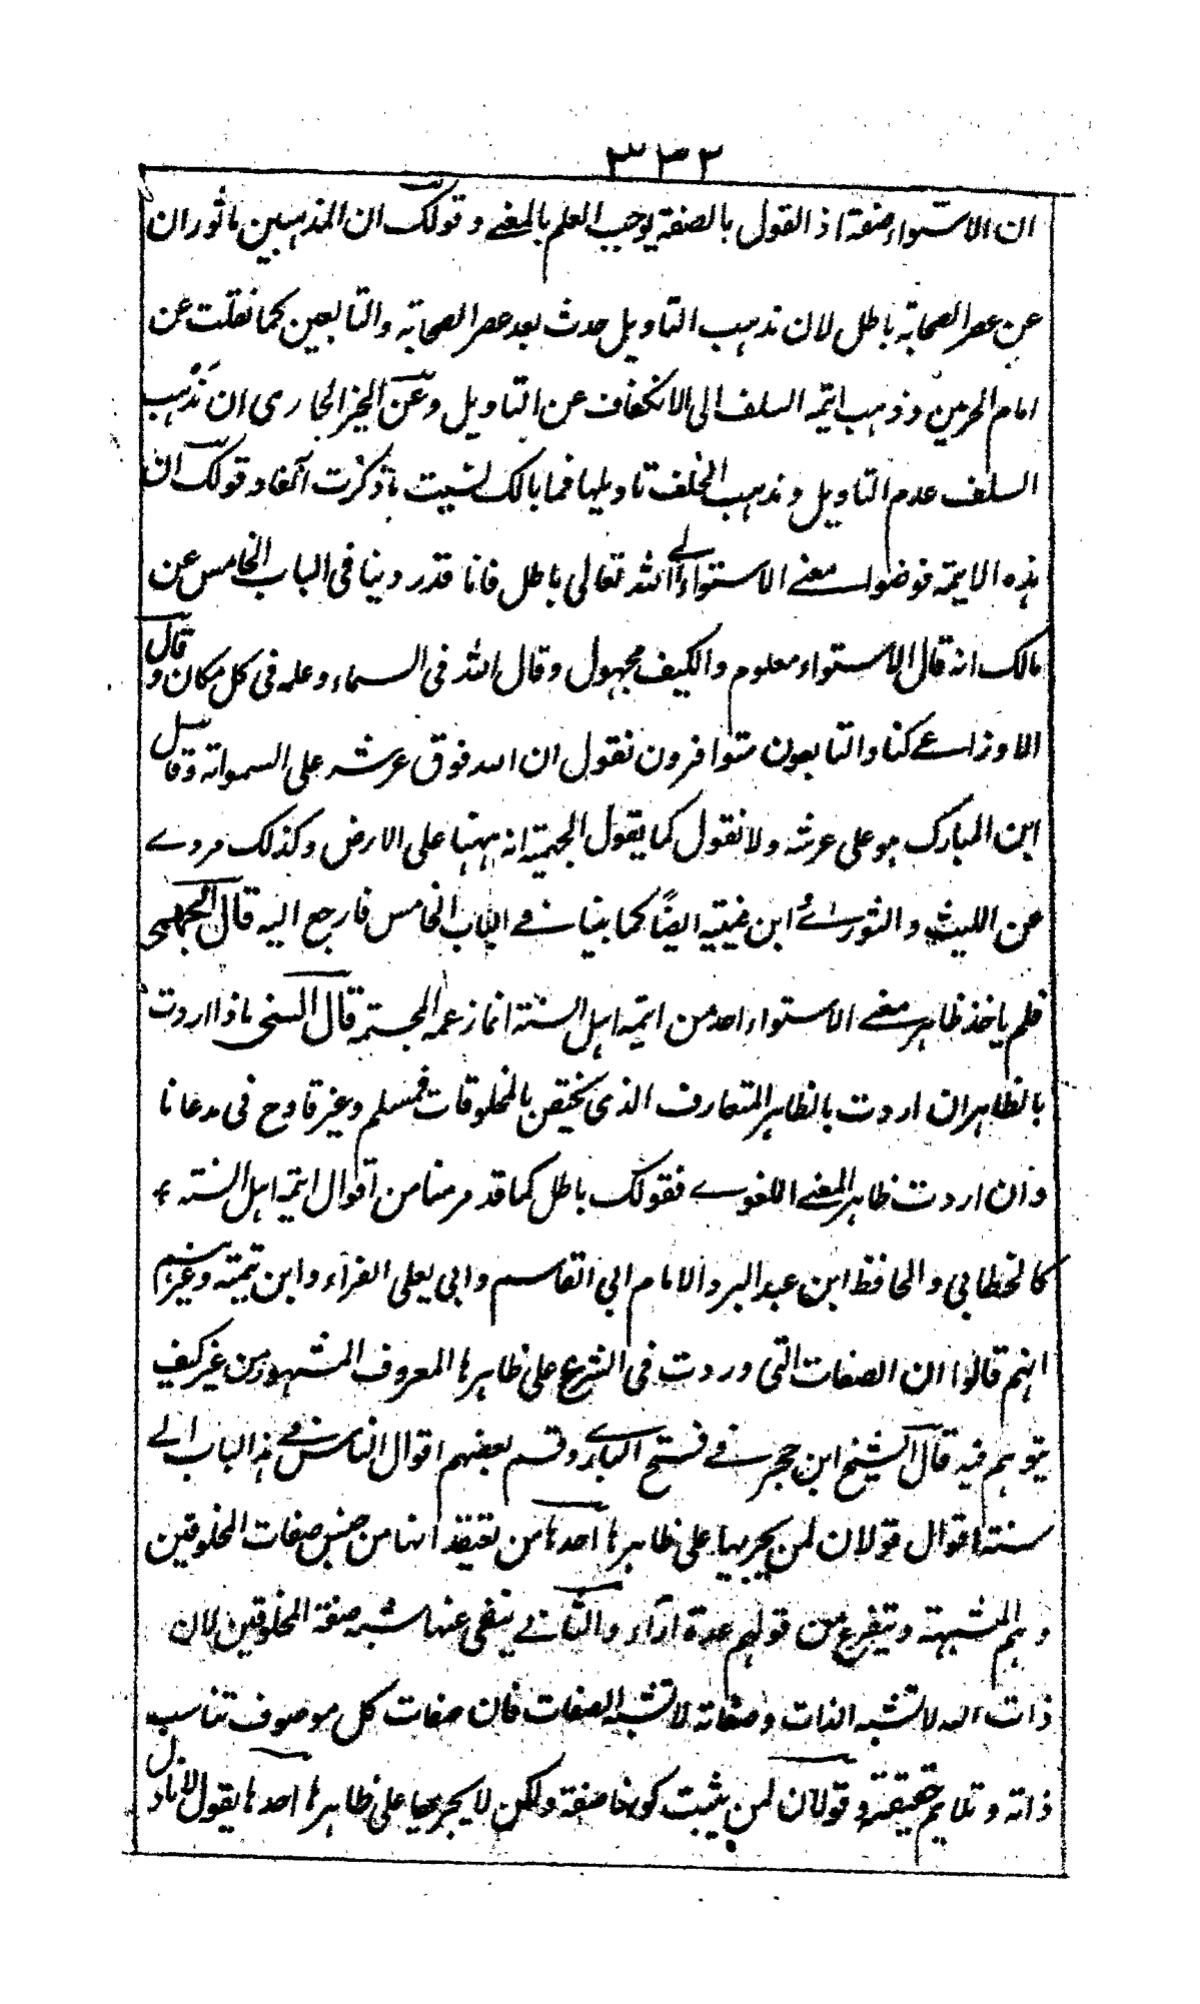 ٣٣٢
ان الاستواء صفة اذ القول بالصفة يوجب العلم بالمعنے وقولك ان المذهبين ماثوران
عن عصر الصحابة باطل لان مذهب التاويل حدث بعد عصر الصحابة والتابعين كما نقلت عن
امام الحرمين وذهب ائمة السلف الى الانكفاف عن التاويل وعن الجارى ان مذهب
السلف عدم التاويل ومذهب الخلف تاويلها فما بالك نسيت ما ذكرت آنفا وقولك ان
هذه الايمة فوضوا معنے الاستواء الے الله تعالى باطل فانا قد روينا فى الباب الخامس عن
مالك انه قال الاستواء معلوم والكيف مجهول وقال الله فى السماء وعلمه فى كل مكان وقال
الاوزاعے كنا والتابعون متوافرون نقول ان الله فوق عرشه على السمواته وقال
ابن المبارك هو على عرشه ولا نقول كما يقول الجهمية انه ههنا على الارض وكذلك مروے
عن الليث والثورے ابن عيينة ايضًا كما بينا فے الباب الخامس فارجع اليه قال الجهمى
فلم ياخذ ظاهر معنے الاستواء احد من ائمة اهل السنة انما زعمه المجسمة قال السنى ماذا اردت
بالظاهر ان اردت بالظاهر المتعارف الذى يختص بالمخلوقات فمسلم وغير قادح فى مدعانا
وان اردت ظاهر المعنے اللغوے فقولك باطل كما قد مر منا من اقوال ائمة اهل السنة
كالخطابى والحافظ ابن عبد البر والامام ابى القاسم وابى يعلى الفراء وابن تيمية وغيرهم
انهم قالوا ان الصفات التى وردت فى الشرع على ظاهرها المعروف المشهور من غير كيف
يتوهم فيه قال الشيخ ابن حجر فے فتح البارے وقسم بعضهم اقوال الناس فے هذا الباب الے
ستة اقوال قولان لمن يجريها على ظاهرها احدها من يعتقد انها من جنس صفات المخلوقين
وهم المشبهة ويتفرع من قولهم عدة آراء والثانے ينفى عنها شبه صفة المخلوقين لان
ذات الله لا تشبه الذات وصفاته لا تشبه الصفات فان صفات كل موصوف تناسب
ذاته وتلايم حقيقته وقولان لمن يثبت كونها صفة ولكن لا يجريها على ظاهرها احدها يقول لا ناول